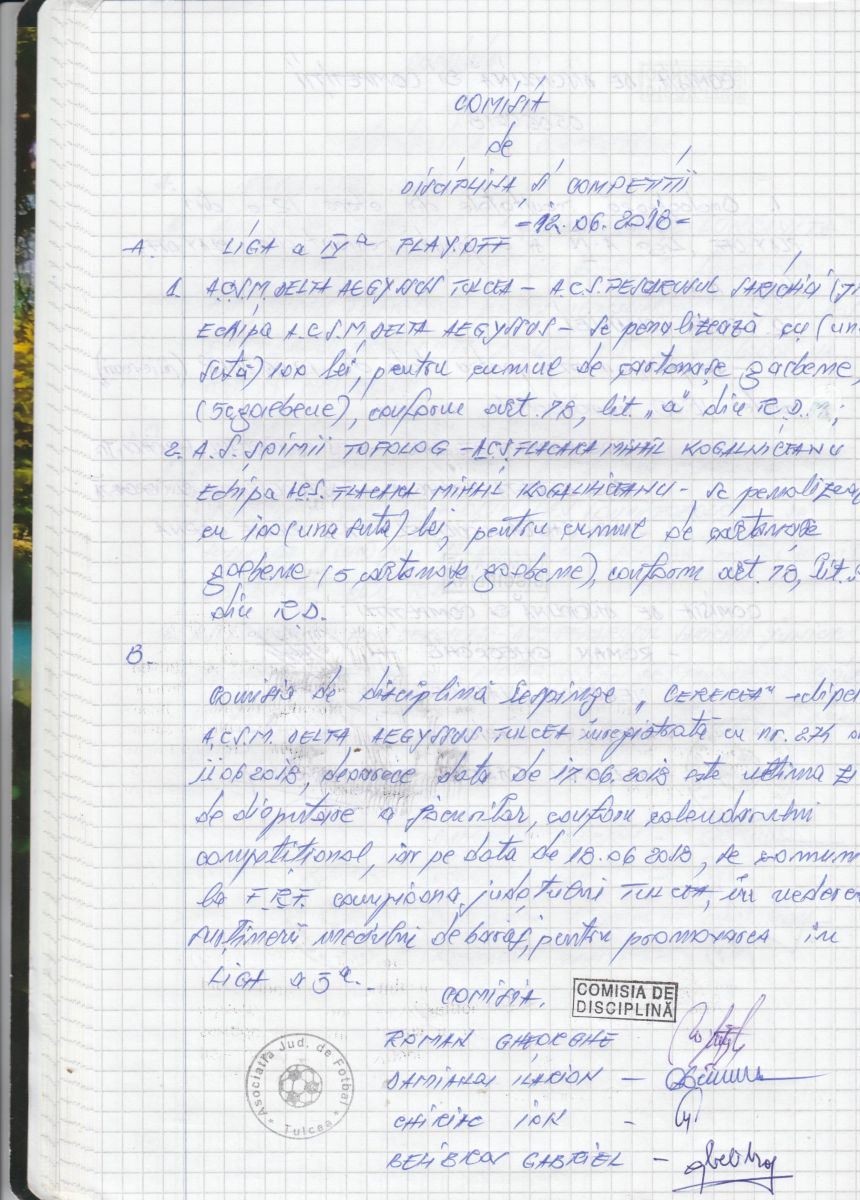 COMISIA
de
DISCIPLINA SI COMPETITII
- 12.06.2018 -
A. LIGA a IVa PLAY.OFF
1. A.C.S.M. DELTA AEGYSSUS TULCEA - A.C.S. PESCARUSUL SARICHIOI
Echipa A.C.S.M. DELTA AEGYSSUS - se penalizează cu (una
sută) 100 lei, pentru cumul de cartonașe galbene,
(5 galbene), conform art. 78, lit. "a" din R.D. ;
2. A.S. TOPOLOG - ACS FLACARA MIHAIL KOGALNICEANU
Echipa ACS. FLACARA MIHAIL KOGALNICEANU - se penalizează
cu 100 (una suta) lei, pentru cumul de cartonașe
galbene (5 cartonașe galbene), conform art. 78, lit.
din R.D.
B.
Comisia de disciplină respinge "CEREREA" echipei
A.C.S.M. DELTA AEGYSSUS TULCEA înregistrată cu nr. 274
11.06 2018, deoarece data de 17.06.2018 este ultima zi
de disputare a jocurilor, conform calendarului
competițional, iar pe data de 18.06 2018, se
la F.R.F. campioana județului TULCEA, în vederea
susținerii meciului de baraj, pentru promovarea in
LIGA a 3a.
COMISIA.
COMISIA DE
DISCIPLINĂ
ROMAN GHEORGHE
DAMIANOV ILARION -
CHIRIAC ION -
BELIBROV GABRIEL -
Asociatia Jud. de Fotbal
* Tulcea *